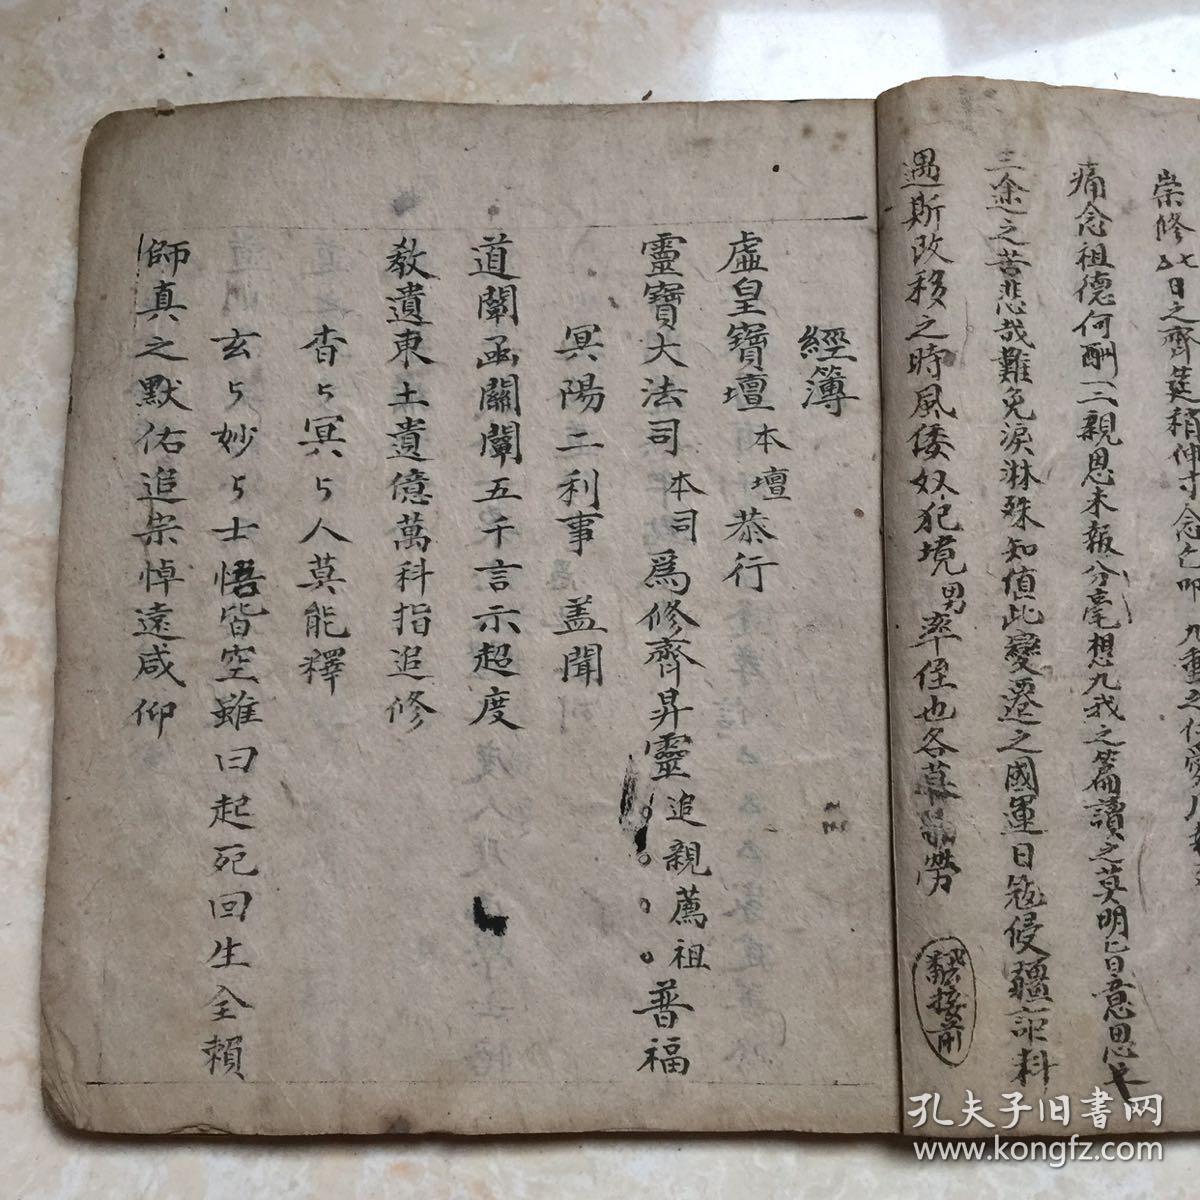 崇修此日之齊筵稍伸寸念乞
痛念祖德何酬二親恩未報分毫想九我之篇讀之莫明昔日意思
三途之苦悲哉難免淚淋殊知值此變遷之國運日寇侵疆詎料
遇斯改移之時風倭奴犯境男率侄也各
接前
經簿
虛皇寶壇本壇恭行
靈寶大法司本司爲修齊昇靈追親薦祖普福
冥陽二利事 盖聞
道闡函關闡五千言示超度
教遺東土遺億萬科指追修
杳ㄣ冥ㄣ人莫能釋
玄ㄣ妙ㄣ士悟皆空雖曰起死回生全賴
師真之默佑追宗悼遠咸仰
孔夫子旧書网
www.kongfz.com